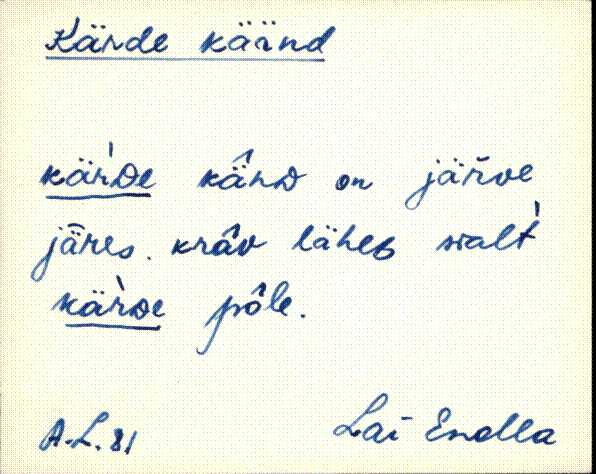 Kärde käänd
kär̀De kä̂nD on jär̆ve
jä̆res. krâv läheB sialt̀
kär̀De pôle.
A.L. 81
Lai Enella